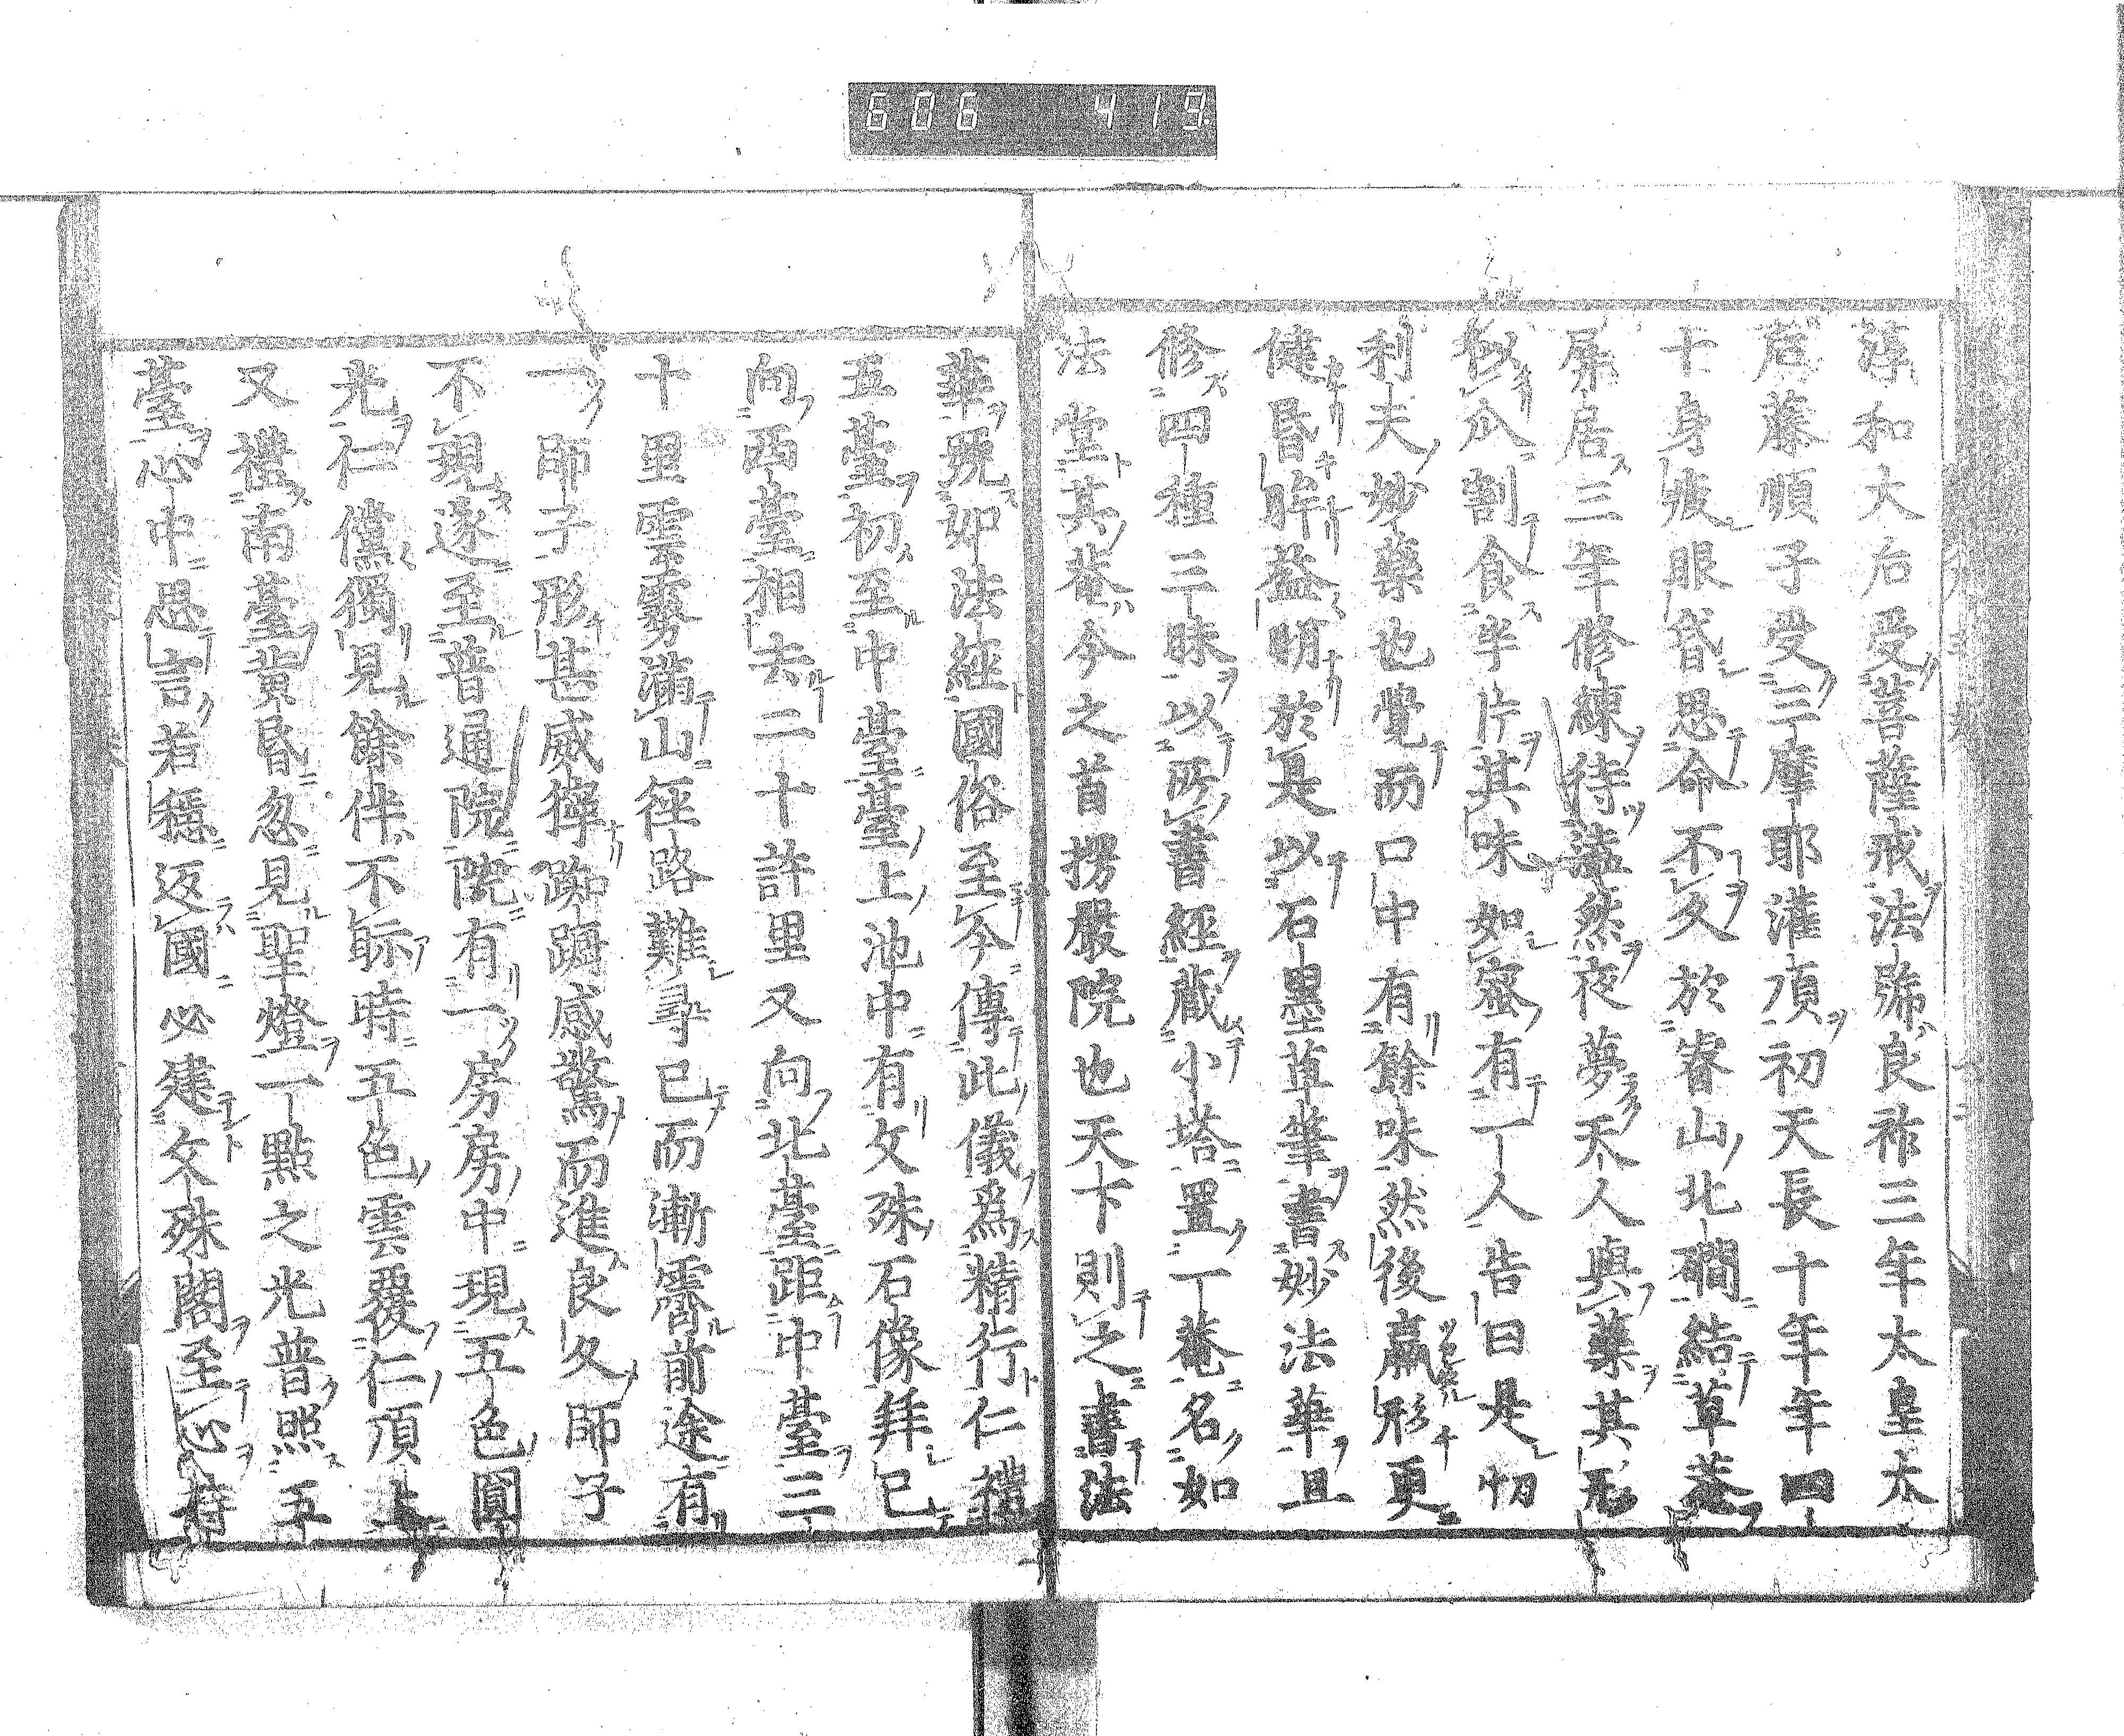 606 419
淳和大后受菩薩戒法號良祚三年太皇太
后藤順子受三摩耶灌頂初天長十年年四
十身疲眼昏思命不久於睿山北磵結草菴
屏居三年修練待盡然夜夢天人與藥其形
似瓜割食半片其味如蜜有一人告曰是忉
利夫妙藥也覺而口中有餘味然後羸形更
健昏眸益明於是以石墨草筆書妙法華且
修四種三昧以所書經藏小塔置一菴名如
法堂其菴今之首楞嚴院也天下則之書法
華既如法經國俗至今傳此儀爲精行仁禮
五臺初至中臺臺上池中有文殊石像拜已
向西臺相去二十許里又向北臺距中臺三
十里雲霧滿山徑路難尋已而漸霽前途有
一師子形甚威獰踟蹰感驚而進良久師子
不現遂至普通院院有一房房中現五色圓
光仁儻獨見餘伴不眎時五色雲覆仁頂上
又禮南臺黃昏忽見聖燈一點之光普照五
臺心中思言若穩返國必建文殊閣至心持